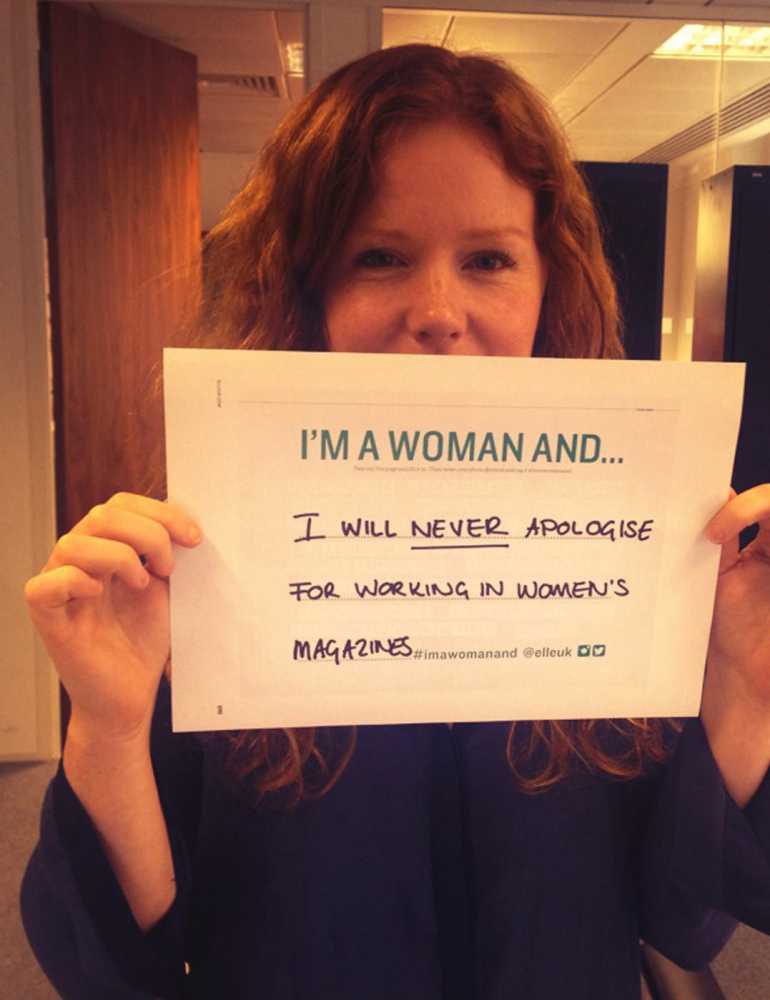 I'M A WOMAN AND...
I WILL NEVER APOLOGISE
FOR WORKING IN WOMEN'S
MAGAZINES #imawomanand @elleuk